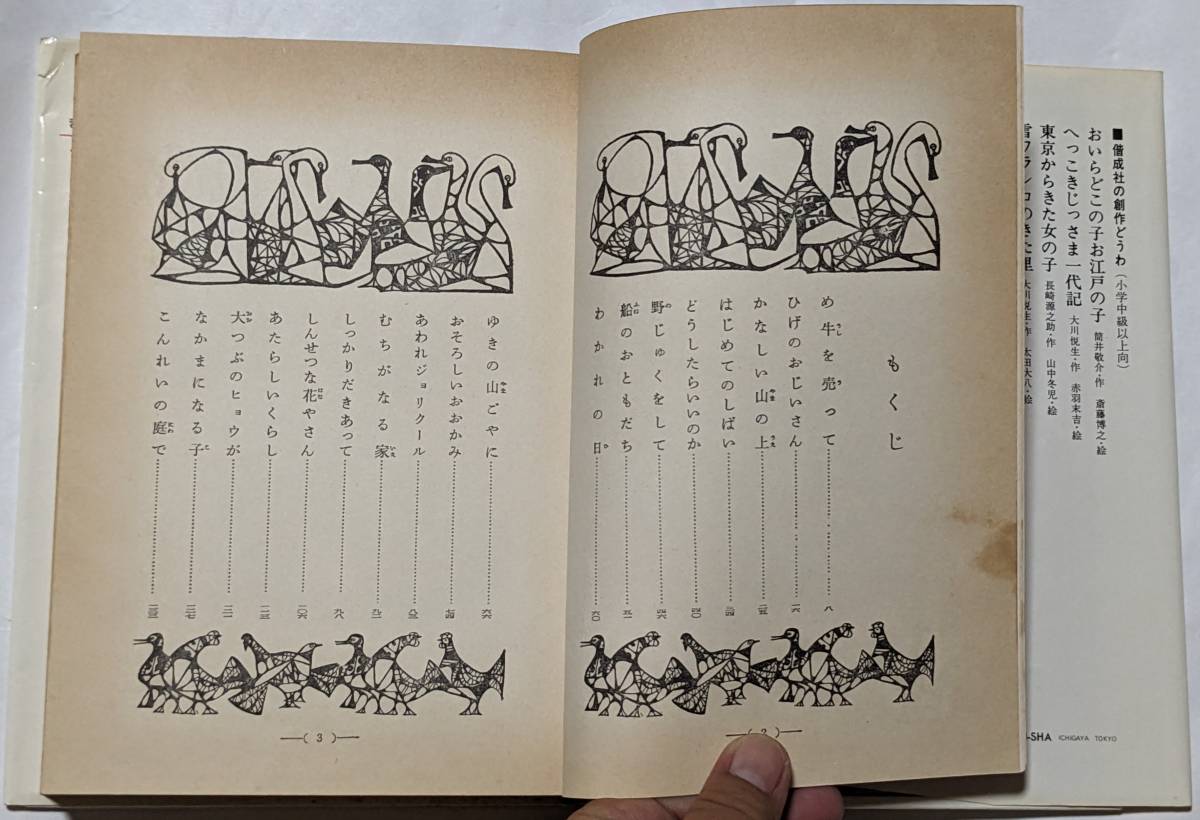 ■偕成社の創作どうわ（小学中級以上向）
おいらどこの子お江戸の子 筒井敬介・作 斎藤博之・絵
へっこきじっさま一代記 大川悦生・作 赤羽末吉・絵
東京からきた女の子 長崎源之助・作 山中冬児・絵
大川悦生・作 太田大八・絵
-SHA ICHIGAYA TOKYO
もくじ
め牛を売って……八
ひげのおじいさん……一六
かなしい山の上……二五
はじめてのしばい……
どうしたらいいのか……四〇
野じゅくをして……四六
船のおともだち……
わかれの日……六〇
ゆきの山ごやに……六六
おそろしいおおかみ……七四
あわれジョリクール……八三
むちがなる家……九一
しっかりだきあって……九八
しんせつな花やさん……一〇六
あたらしいくらし……一一三
大つぶのヒョウが……一二一
なかまになる子……一二七
こんれいの庭で……
( 3 )